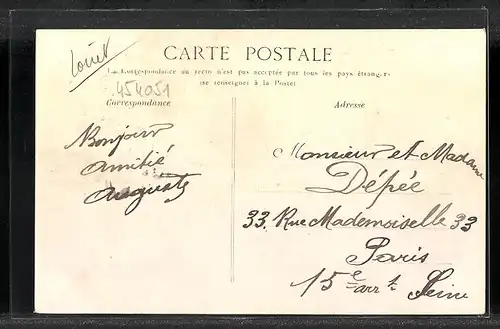 Loiret
CARTE POSTALE
La Correspondance au recto n'est pas acceptée par tous les pays étrangers
(se renseigner à la Poste)
454051
Correspondance
Adresse
Bonjour
amitié
Auguste
Monsieur et Madame
Dépée
33. Rue Mademoiselle 33
Paris
15e arrt Seine